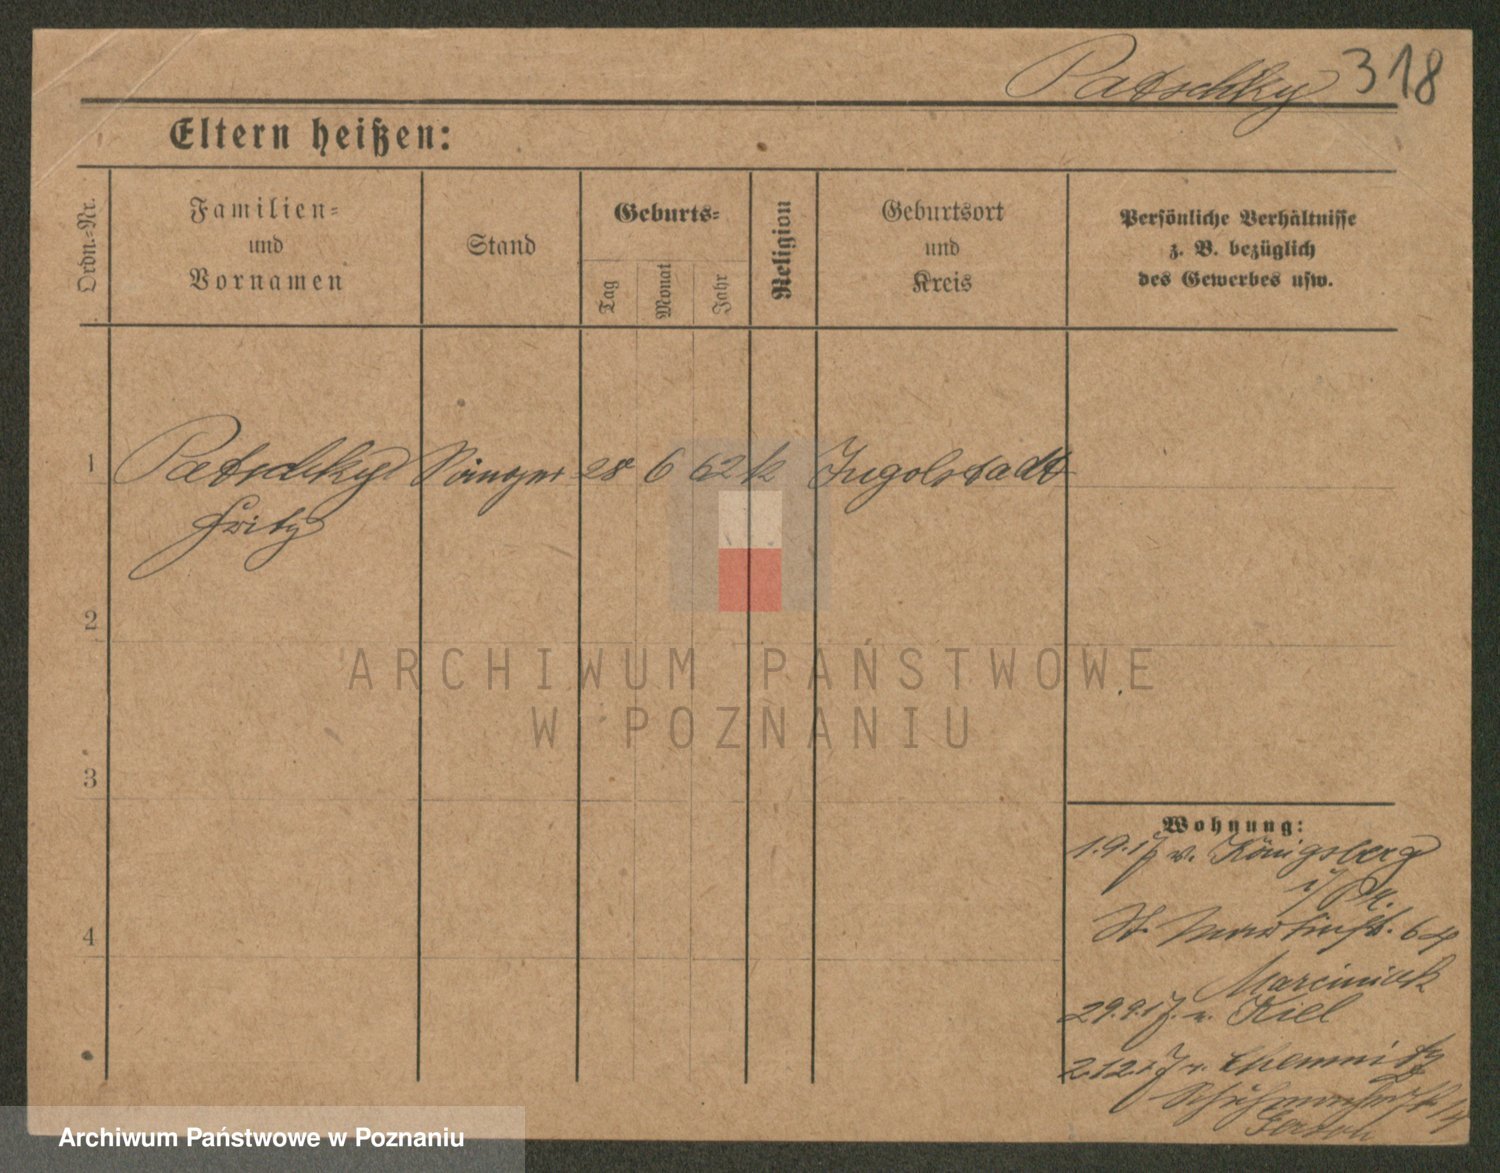 Patschky 318
Eltern heißen:
Ordn.-Nr.
Familien-
und
Vornamen
Stand
Geburts-
Tag
Monat
Jahr
Religion
Geburtsort
und
Kreis
Persönliche Verhältnisse
z. B. bezüglich
des Gewerbes usw.
1 Patschky Sänger 28 6 62 k Ingolstadt
Fritz
2
3
4
Wohnung:
1.9.17 v. Königsberg
i/Pr.
St. Martinstr. 64
Marciniak
29.9.17. n. Kiel
2.12.17 v. Chemnitz
ARCHIWUM PAŃSTWOWE
W POZNANIU
Archiwum Państwowe w Poznaniu